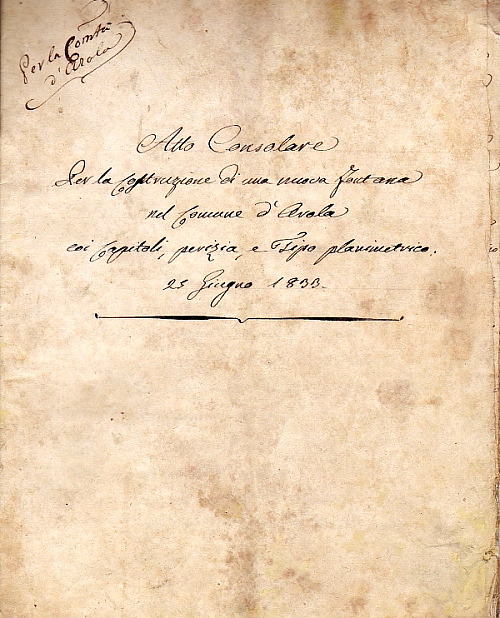 Per la Com.tà
d'Arola
Atto Consolare
Per la Costruzione di una nuova fontana
nel Comune d'Arola
coi Capitoli, perizia, e Tipo planimetrico.
25 Giugno 1833.